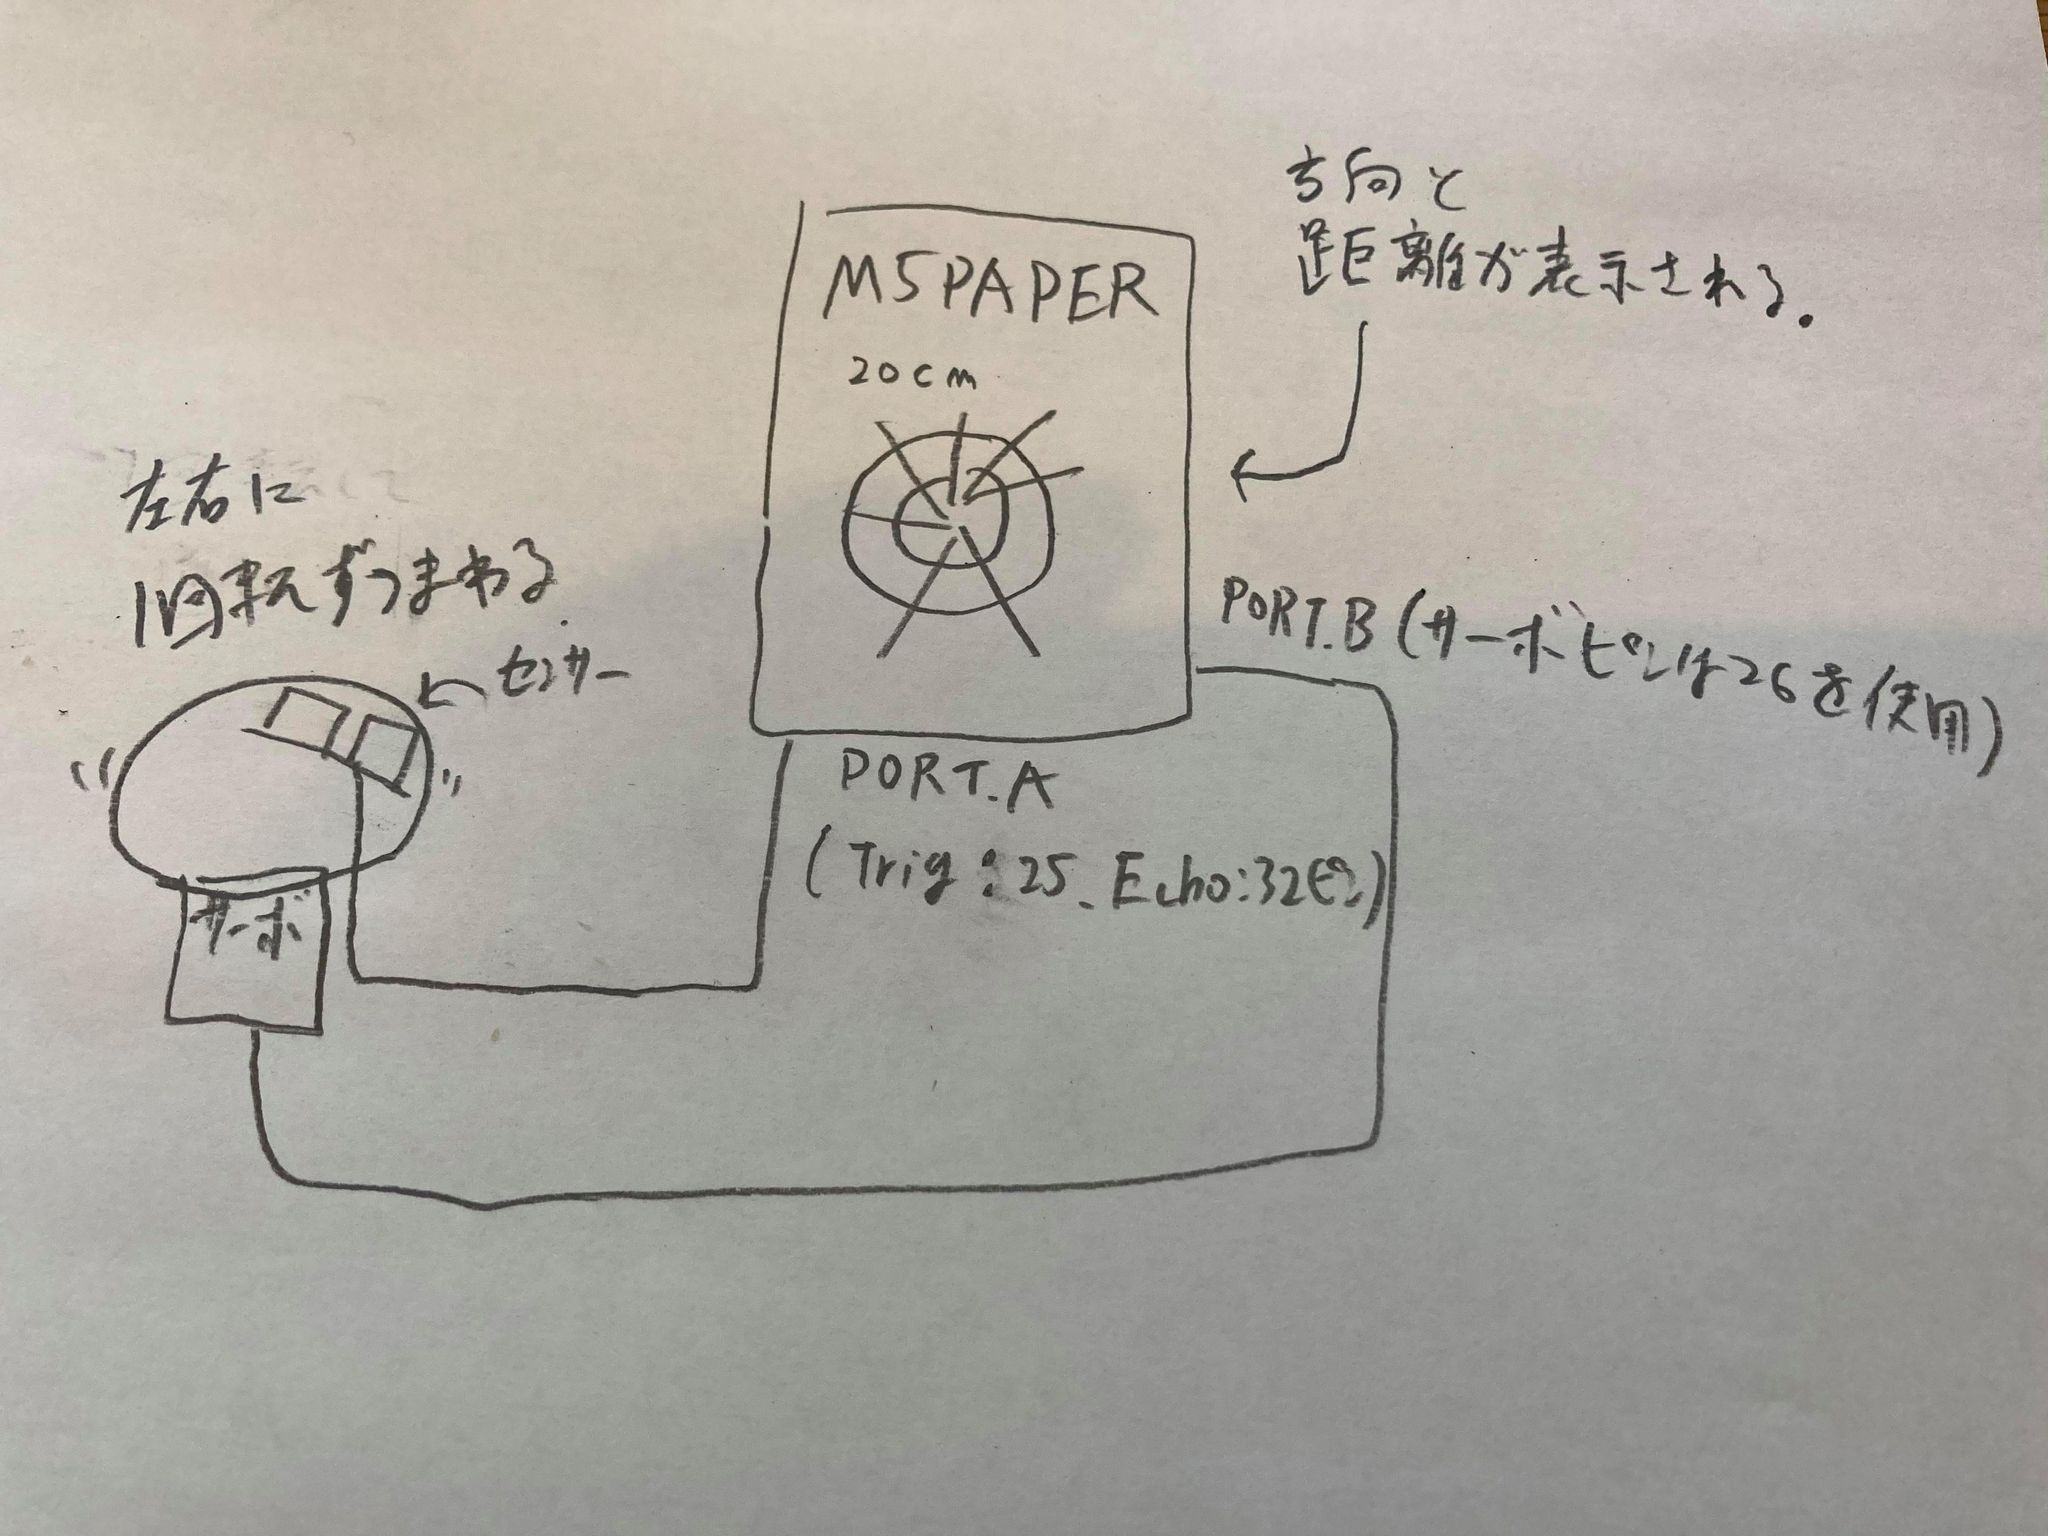 方向と
距離が表示される.
M5PAPER
20cm
左右に
1回転ずつまわる
センサー
PORT.B (サーボピンは26を使用)
PORT.A
(Trig:25、Echo:32ピン)
サーボ